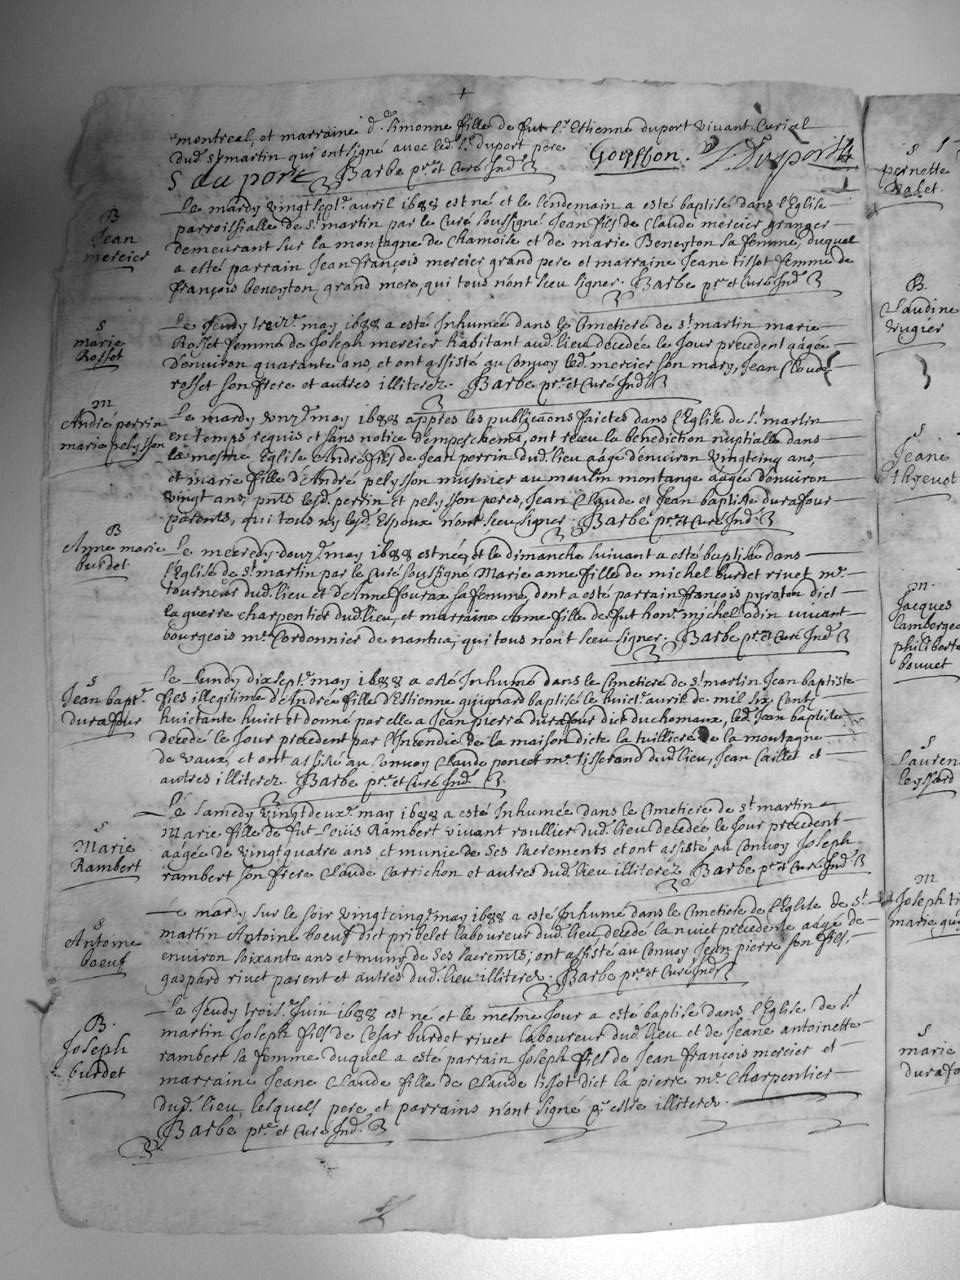 +
montreal, et marraine d.e Simonne fille de fut S.r Estienne duport vivant Curial
dud. S.t martin qui ont signé avec led. S.r duport pere
Goysson. Duport
S duport Barbe p.re et Curé Ind.
B
Jean
mercier
Le mardy vingtsept.e avril 1688 est né et le lendemain a esté baptisé dans l'Eglise
parroissialle de s.t martin par le Curé soussigné Jean fils de Claude mercier granger
demeurant sur la montagne de Chamoise et de marie Beneyton sa femme, duquel
a esté parrain Jean françois mercier grand pere et marraine Jeane tissot femme de
françois beneyton, grand mere, qui tous n'ont sceu signer. Barbe p.re et Curé Ind.
S
marie
Rosset
Le Jeudy treiz.e may 1688 a esté Inhumée dans le Cimetiere de s.t martin marie
Rosset femme de Joseph mercier habitant aud. lieu decedée le Jour precedent aagée
d'environ quarante ans, et ont assisté au Convoy led. mercier son mary, Jean Claude
rosset son frere et autres illiterez. Barbe p.re et Curé Ind.
m
André perrin
marie pelysson
Le mardy unz.e may 1688 appres les publicaons faictes dans l'Eglise de s.t martin
en temps requis et sans notice d'empeschem.t, ont receu la benediction nuptialle dans
la mesme Eglise André fils de Jean perrin dud. lieu aagé d'environ vingtcinq ans,
et marie fille d'André pelysson musnier au moulin montange aagée d'environ
vingt ans, pnts lesd. perrin et pelysson peres, Jean Claude et Jean baptiste durafour
parents, qui tous ny lesd. Espoux n'ont sceu signer. Barbe p.re et Curé Ind.
B
Anne marie
burdet
Le mecredy douz.e may 1688 est née et le dimanche suivant a esté baptisée dans
l'Eglise de s.t martin par le Curé soussigné Marie anne fille de michel burdet rivet m.e
tourneur dud. lieu et d'Anne fourax sa femme, dont a esté parrain françois pyraton dict
la guerre charpentier dud. lieu, et marraine Anne fille de fut hon.e michel odin vivant
bourgeois m.e Cordonnier de nantua, qui tous n'ont sceu signer. Barbe p.re et Curé Ind.
S
Jean bapt.e
durafour
Le Lundy dix sept.e may 1688 a esté Inhumé dans le Cimetiere de s.t martin Jean baptiste
fils illegitime d'Andrée fille d'Estienne guignard baptisé le huict.e avril de mil six Cents
huictante huict et donné par elle a Jean pierre durafour dict duchomaux, led. Jean baptiste
decedé le Jour precedent par l'Incendie de la maison dicte la tuilliere de la montagne
de vaux, et ont assisté au Convoy Claude poncet m.e tisserand dud. lieu, Jean Caillet et
autres illiterez. Barbe p.re et Curé Ind.
S
Marie
Rambert
Le Samedy vingtdeux.e may 1688 a esté Inhumée dans le Cimetiere de s.t martin
Marie fille de fut Louis Rambert vivant roullier dud. lieu decedée le Jour precedent
aagée de vingtquatre ans et munie de ses sacrements et ont assisté au Convoy Joseph
rambert son frere Claude Carrichon et autres dud. lieu illiterez. Barbe p.re et Curé Ind.
S
Antoine
boeuf
Le mardy sur le soir vingtcinq.e may 1688 a esté Inhumé dans le Cimetiere de l'Eglise de s.t
martin Antoine boeuf dict pribelet laboureur dud. lieu decedé la nuict precedente aagé de
environ soixante ans et muny de ses sacremts, ont assisté au Convoy Jean pierre son fils.
gaspard rivet parent et autres dud. lieu illiterez. Barbe p.re et Curé Ind.
B.
Joseph
burdet
Le Jeudy trois.e Juin 1688 est né et le mesme Jour a esté baptisé dans l'Eglise de s.t
martin Joseph fils de Cesar burdet rivet laboureur dud. lieu et de Jeane antoinette
rambert sa femme duquel a esté parrain Joseph fils de Jean françois mercier et
marraine Jeane Claude fille de Claude tissot dict la pierre m.e Charpentier
dud. lieu, lesquels pere et parrains n'ont signé p.r estre illiterez.
Barbe p.re et Curé Ind.
S
pernette
B.
Claudine
Vugier
S
Jeane
thevenot
m.
Jacques
philiberte
bouvet
S
Lauren
leyssard
m
Joseph
marie
S
marie
durafo